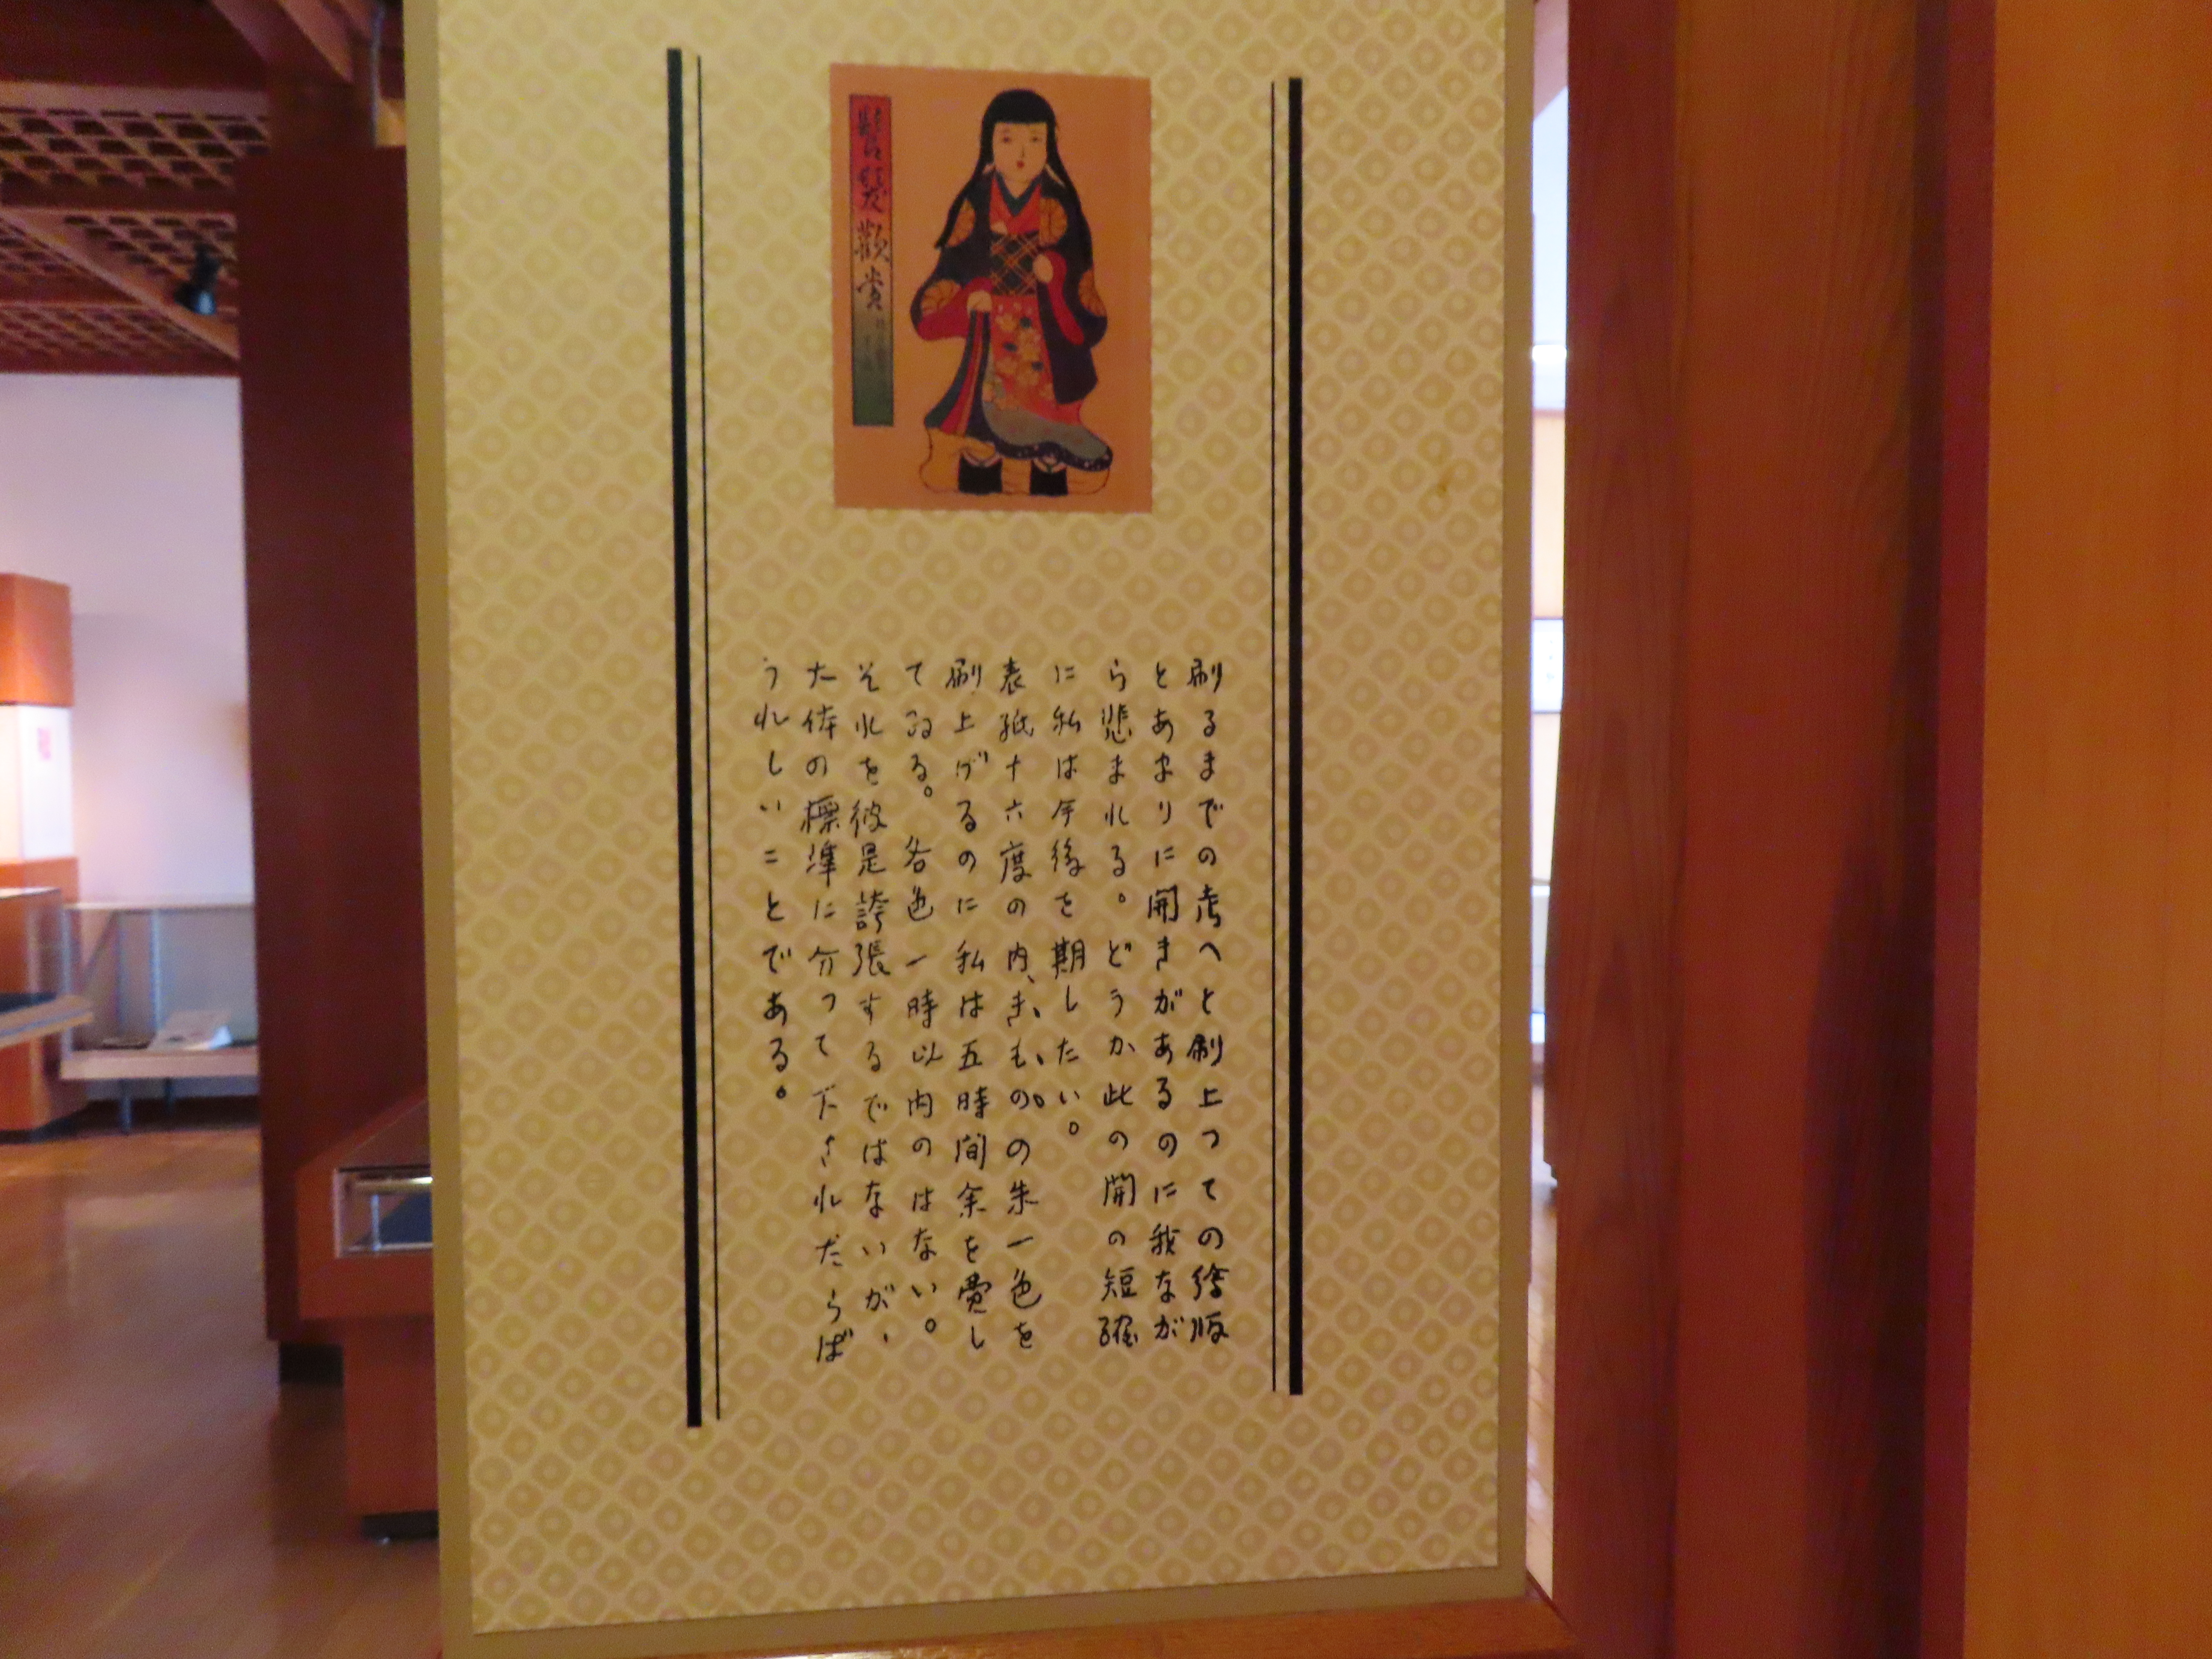 髫髪歡賞
刷るまでの考へと刷上つての繪版
とあまりに開きがあるのに我なが
ら悲まれる。どうか此の開の短縮
に私は今後を期したい。
表紙十六度の内、きものの朱一色を
刷上げるのに私は五時間余を費し
てゐる。各色一時以内のはない。
それを彼是誇張するではないが、
た体の標準に分つて下されだらば
うれしいことである。